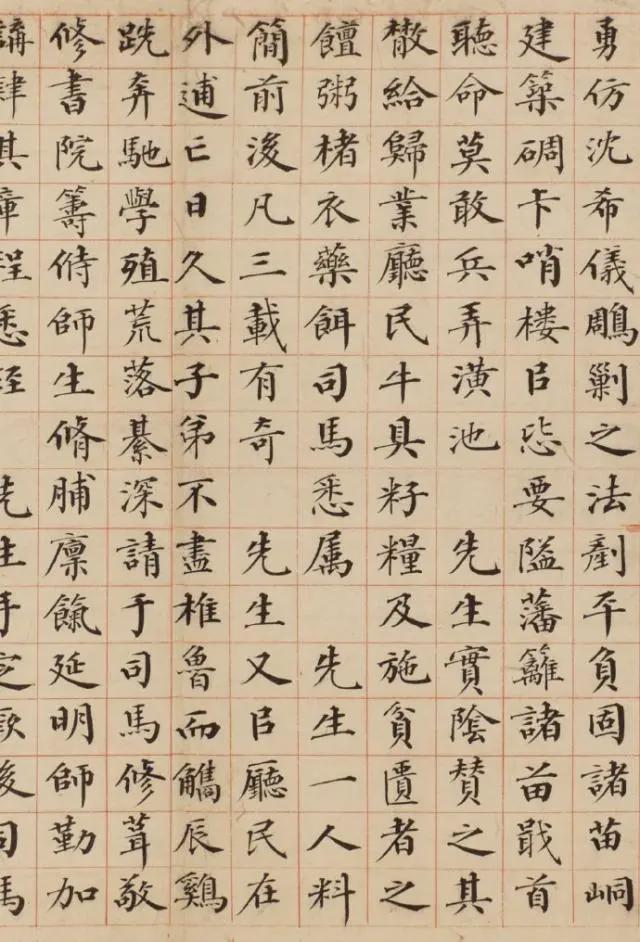 勇仿沈希儀鵰剿之法剷平負固諸苗峒
建築碉卡哨楼㠯毖要隘藩籬諸苗戢首
聽命莫敢兵弄潢池 先生實隂賛之其
散給歸業廳民牛具籽糧及施貧匱者之
饘粥楮衣藥餌司馬悉属 先生一人料
簡前後凡三載有奇 先生又㠯廳民在
外逋亡日久其子弟不盡椎魯而觿辰鷄
跣奔馳學殖荒落綦深請于司馬修葺敬
修書院籌偫師生脩脯廪餼延明師勤加
講肄其章程悉 先生手定厥後司馬